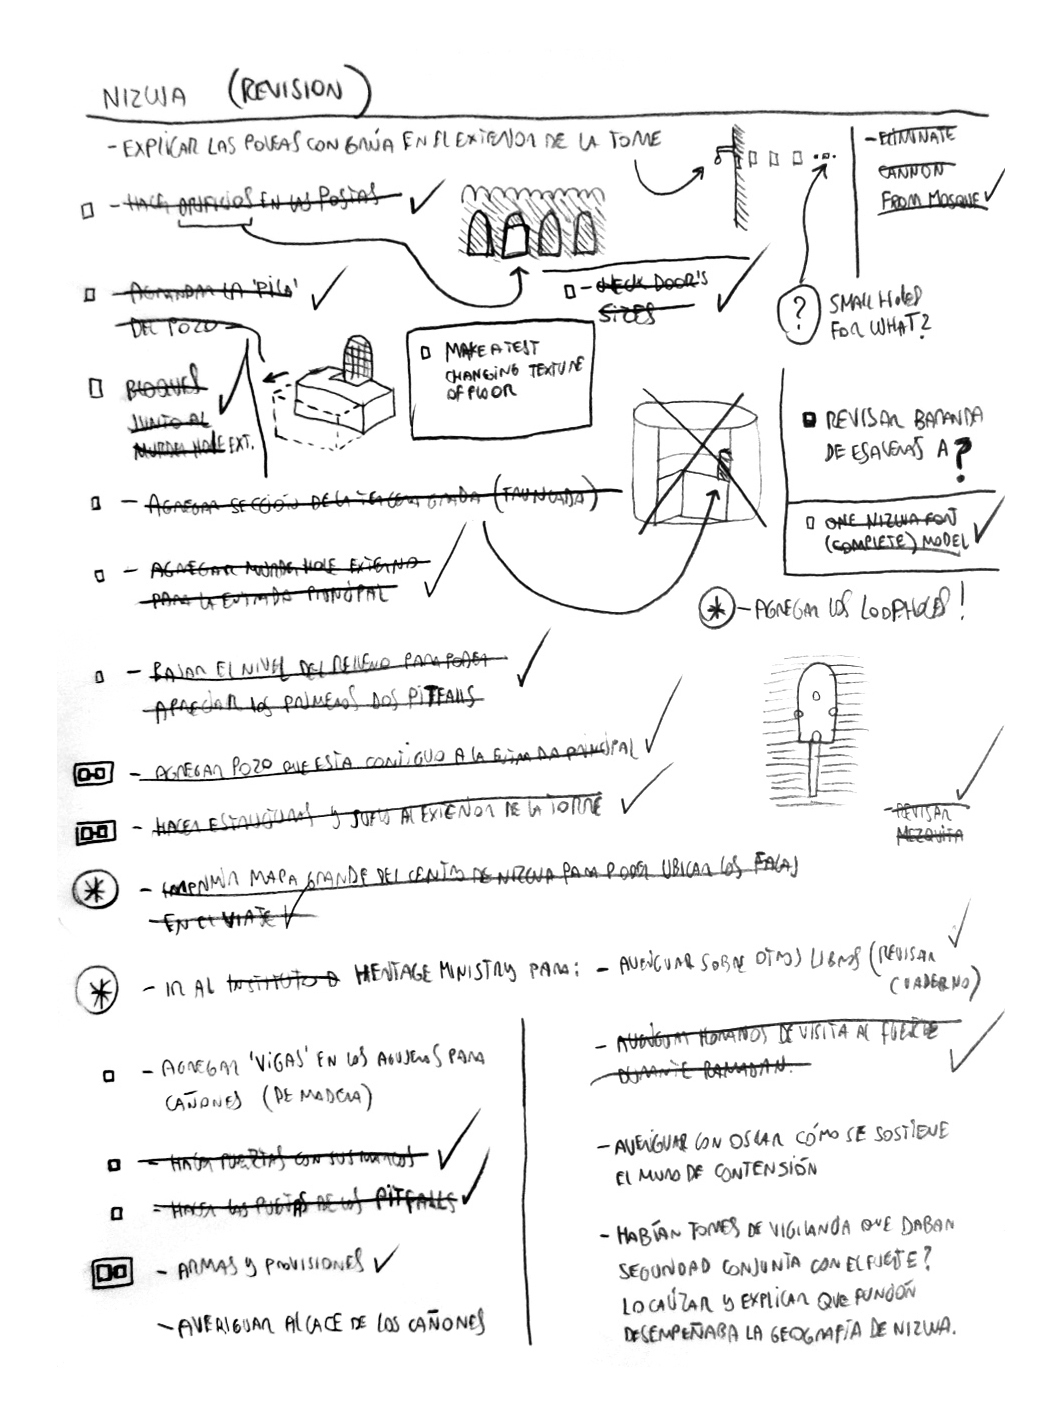 NIZWA (REVISION)
- EXPLICAR LAS POLEAS CON GRÚA EN EL EXTERIOR DE LA TORRE
- ELIMINATE
CANNON
FROM MOSQUE
- HACER ORIFICIOS EN LAS POSTAS
- CHECK DOOR'S
SIZES
?
SMALL HOLES
FOR WHAT?
- AGRANDAR LA 'PILA'
DEL POZO
MAKE A TEST
CHANGING TEXTURE
OF FLOOR
BLOQUES
JUNTO AL
MURDER HOLE EXT.
REVISAR BARANDA
DE ESCALERAS A ?
- AGREGAR SECCIÓN DE LA TERCERA GRADA (TRUNCADA)
ONE NIZWA FORT
(COMPLETE) MODEL
- AGREGAR MURDER HOLE EXTERNO
PARA LA ENTRADA PRINCIPAL
* - AGREGAR LOS LOOPHOLES!
- BAJAR EL NIVEL DEL RELLENO PARA PODER
APRECIAR LOS PRIMEROS DOS PITFALLS
- AGREGAR POZO QUE ESTA CONTIGUO A LA ENTRADA PRINCIPAL
- HACER ESTRUCTURAS Y SUELO AL EXTERIOR DE LA TORRE
- REVISAR
MEZQUITA
* - IMPRIMIR MAPA GRANDE DEL CENTRO DE NIZWA PARA PODER UBICAR LOS FALAJ
EN EL VIAJE
* - IR AL INSTITUTO D HERITAGE MINISTRY PARA: - AVERIGUAR SOBRE OTROS LIBROS (REVISAR
CUADERNO)
- AVERIGUAR HORARIOS DE VISITA AL FUERTE
DURANTE RAMADAN.
- AGREGAR 'VIGAS' EN LOS AGUJEROS PARA
CAÑONES (DE MADERA)
- AVERIGUAR CON OSCAR CÓMO SE SOSTIENE
EL MURO DE CONTENSIÓN
- HACER PUERTAS CON SUS MARCOS
- HACER LAS PUERTAS DE LOS PITFALLS
- ARMAS Y PROVISIONES
- AVERIGUAR ALCACE DE LOS CAÑONES
- HABÍAN TORRES DE VIGILANCIA QUE DABAN
SEGURIDAD CONJUNTA CON EL FUERTE?
LOCALIZAR Y EXPLICAR QUE FUNCIÓN
DESEMPEÑABA LA GEOGRAFÍA DE NIZWA.